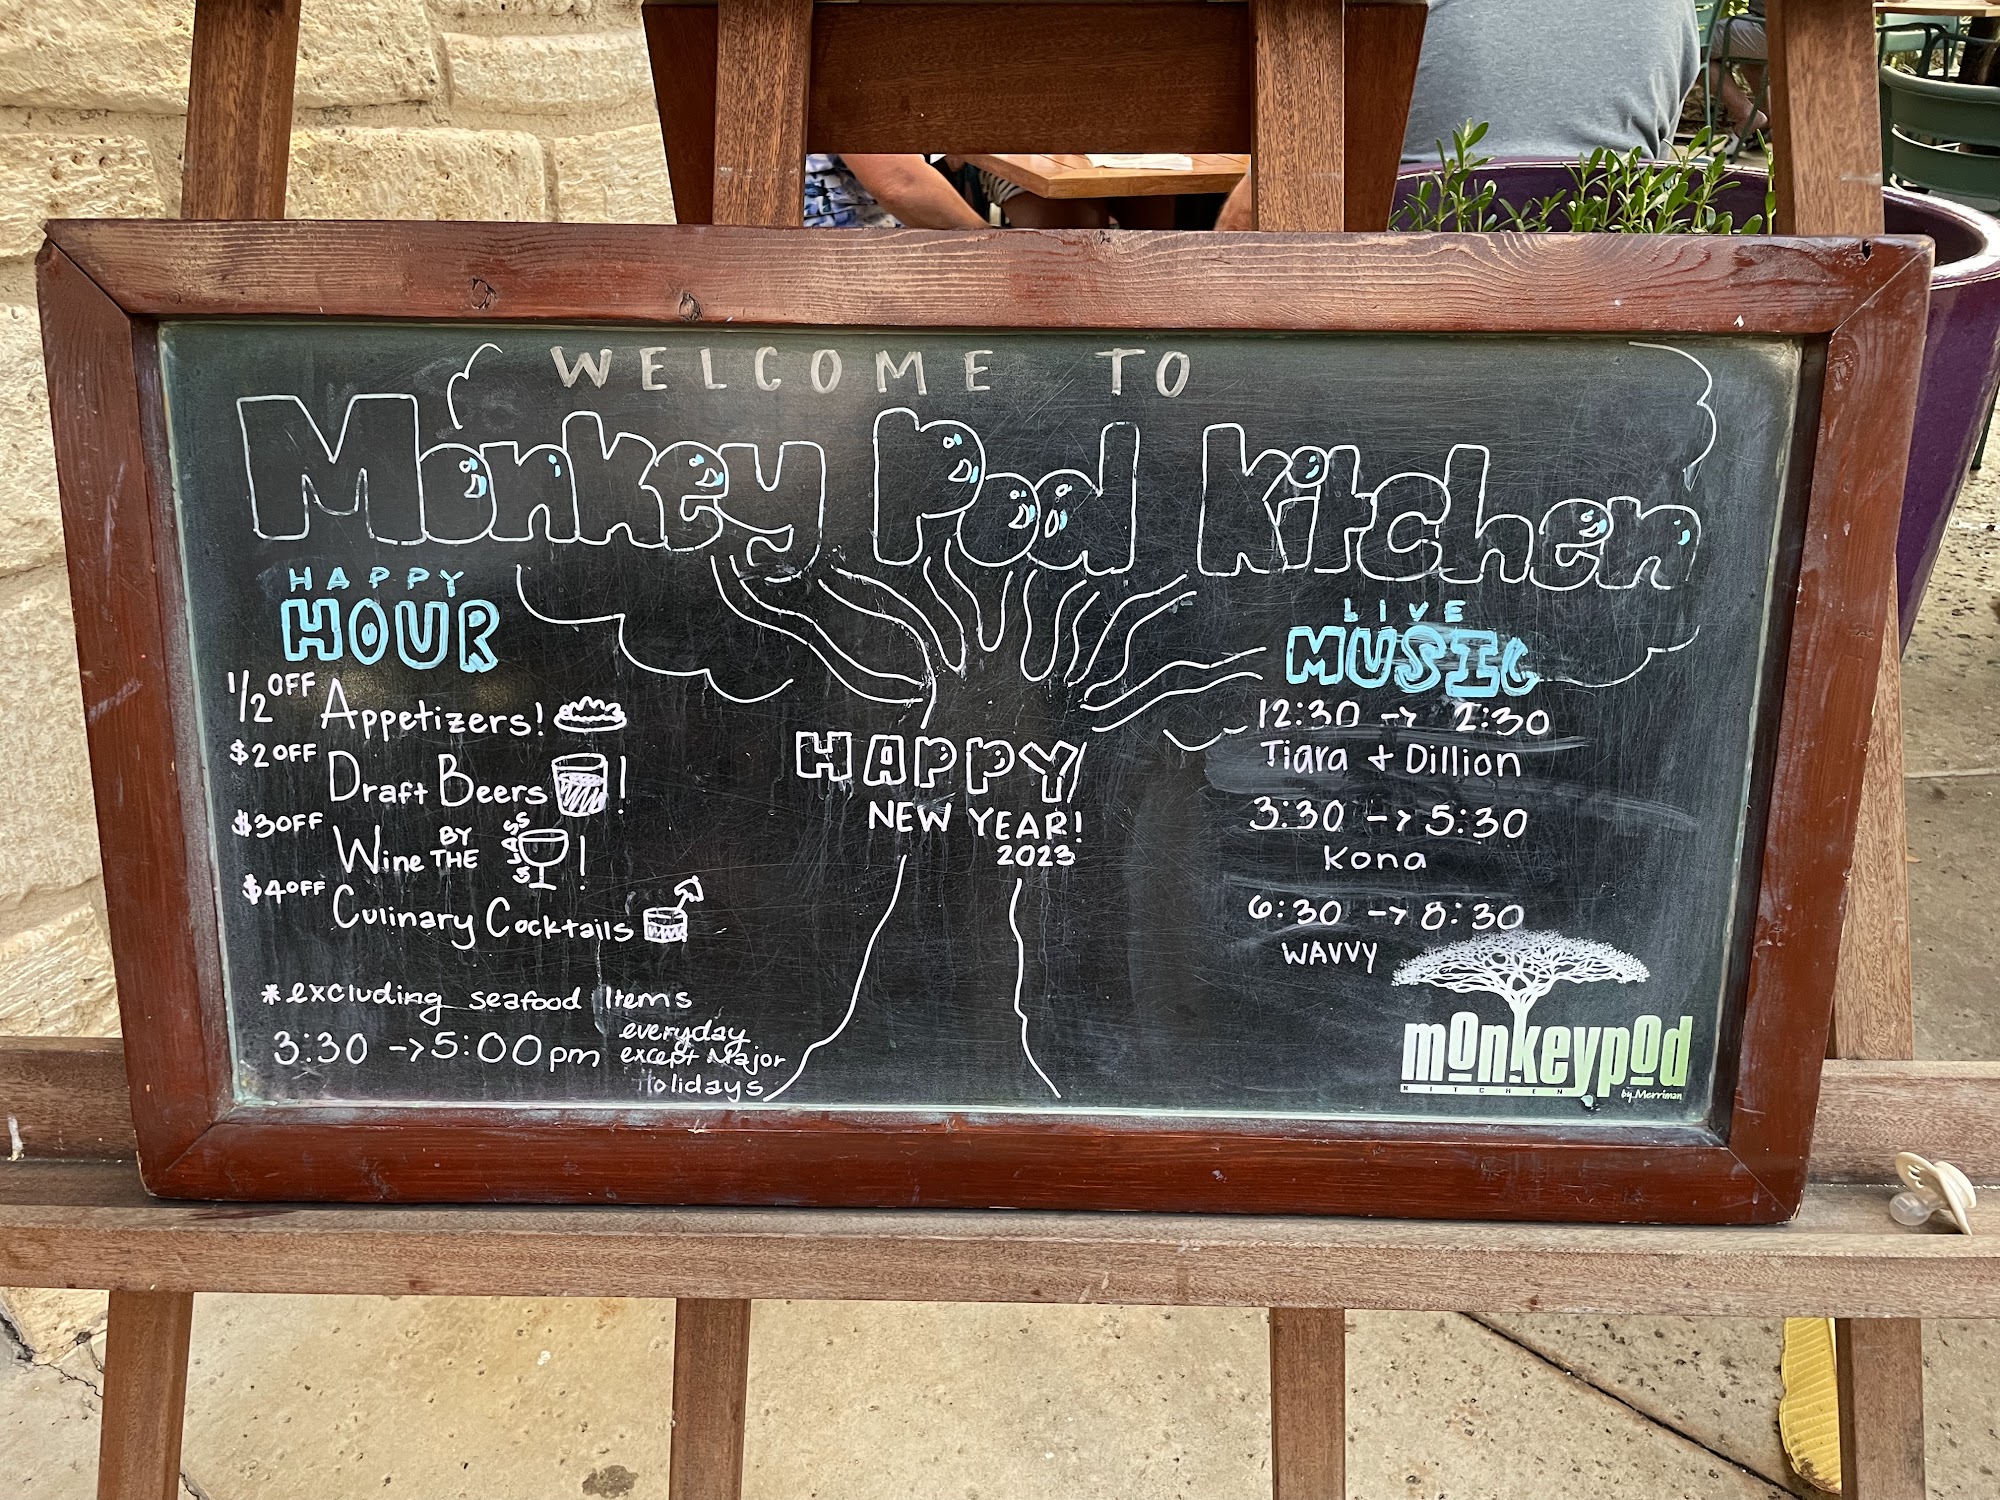 WELCOME TO
Monkey Pod Kitchen
HAPPY
HOUR
1/2 OFF Appetizers!
$2 OFF Draft Beers!
$3 OFF Wine BY THE GLASS!
$4 OFF Culinary Cocktails
*excluding seafood Items
3:30 → 5:00 pm everyday
except Major
Holidays
HAPPY
NEW YEAR!
2023
LIVE
MUSIC
12:30 → 2:30
Tiara + Dillion
3:30 → 5:30
Kona
6:30 → 8:30
WAVVY
monkeypod
KITCHEN
by Merriman